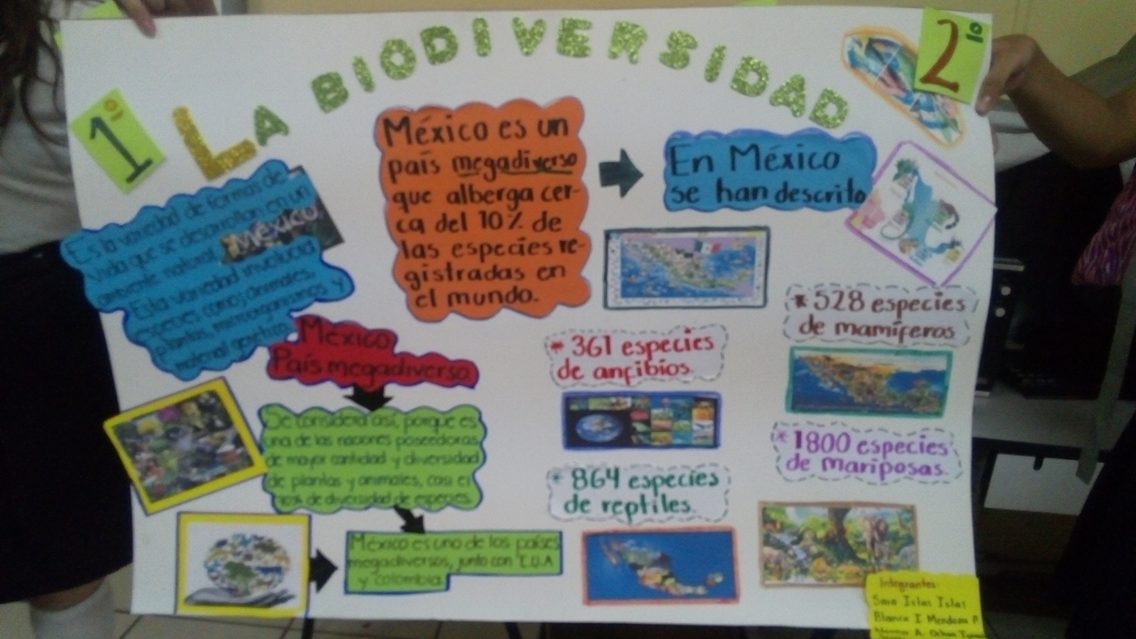 LA BIODIVERSIDAD
1º
2do
Es la variedad de formas de
vida que se desarrollan en un
ambiente natural
Esta variedad involucra
especies como; animales,
plantas, microorganismos y
material genético.
México
México es un
país megadiverso
que alberga cer-
ca del 10% de
las especies re-
gistradas en
el mundo.
En México
se han descrito
* 528 especies
de mamíferos
* 361 especies
de anfibios.
* 1800 especies
de mariposas.
* 864 especies
de reptiles.
México
País megadiverso
Se considera así, porque es
una de las naciones poseedoras
de mayor cantidad y diversidad
de plantas y animales, casi el
de diversidad de especies.
México es uno de los países
megadiversos, junto con E.U.A
y colombia.
Integrantes:
Sara Islas Islas
Blanca I. Mendoza P.
A. Ochoa